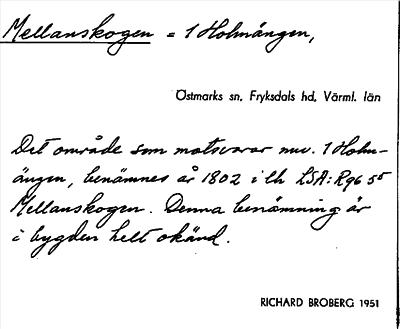 Mellanskogen = 1 Holmängen,
Östmarks sn, Fryksdals hd, Värml. län
Det område som motsvarar nuv. 1 Holm-
ängen, benämnes år 1802 i lh LSA: R96 5⁵
Mellanskogen. Denna benämning är
i bygden helt okänd.
RICHARD BROBERG 1951